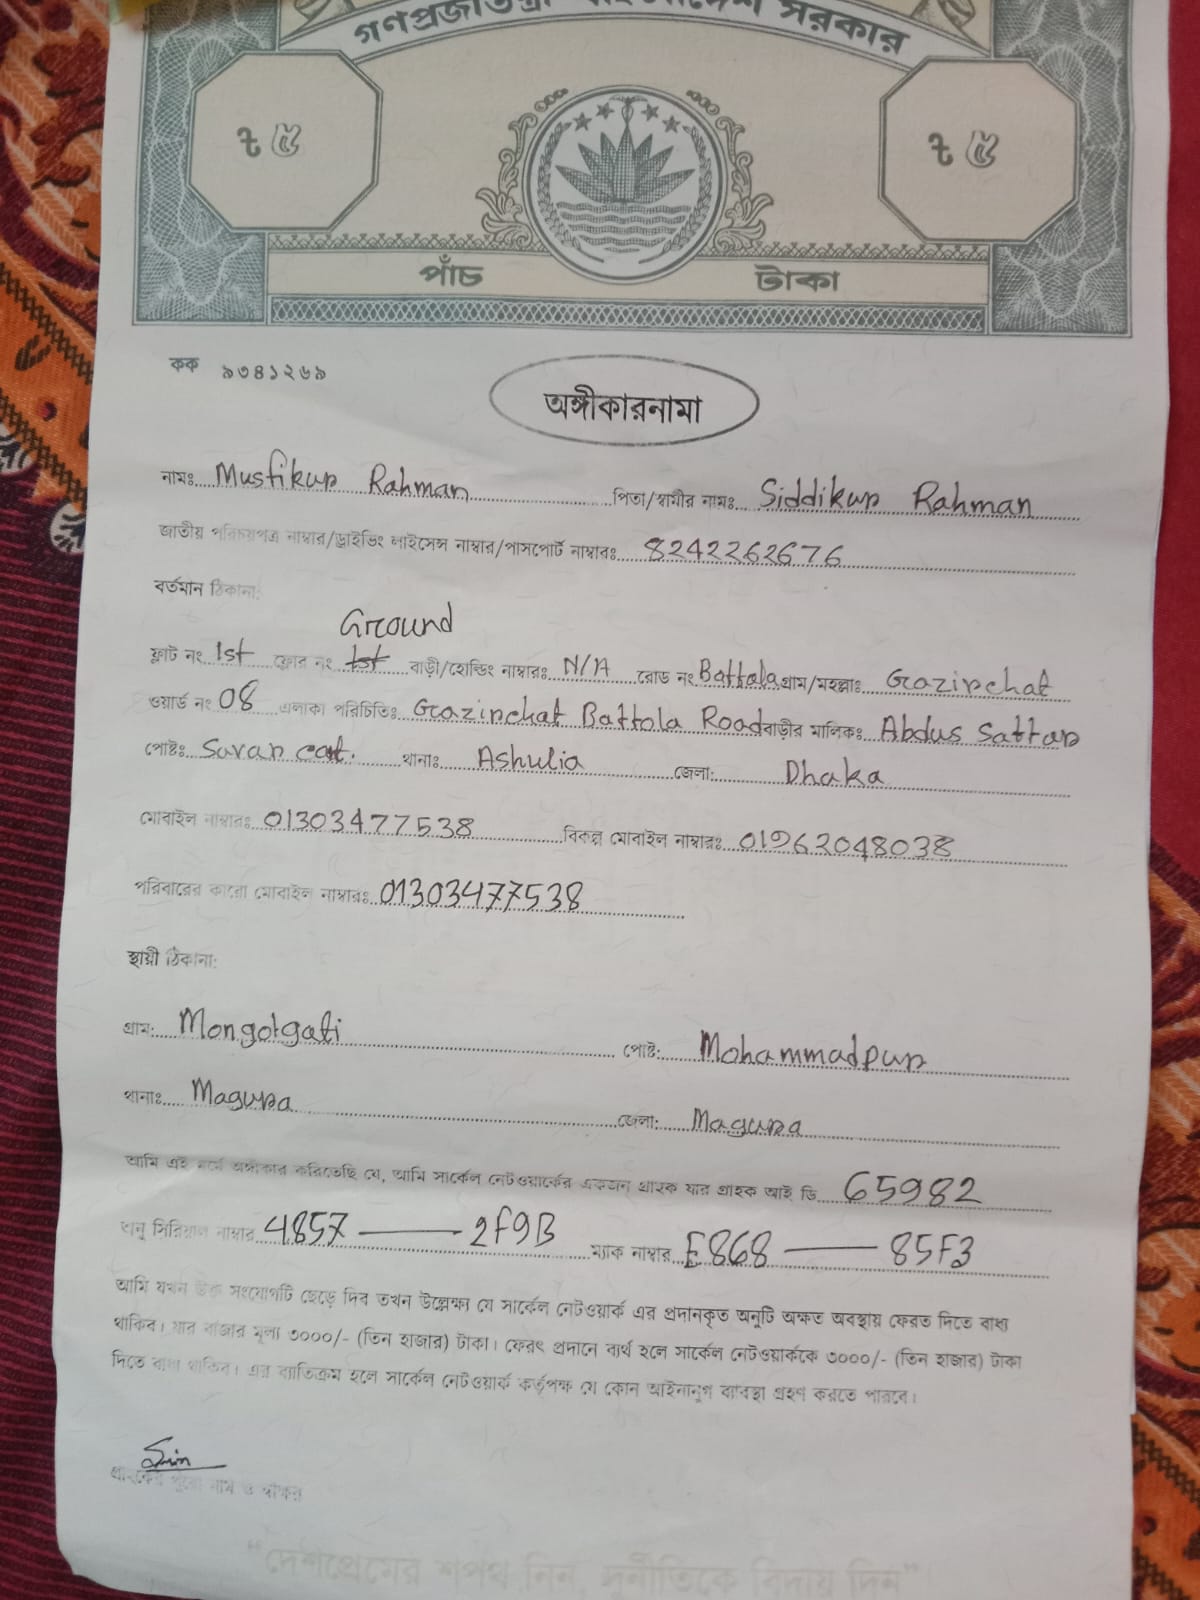 গণপ্রজাতন্ত্রী বাংলাদেশ সরকার
৳ ৫
৳ ৫
পাঁচ টাকা
কক ৯৩৪১২৬৯
অঙ্গীকারনামা
নামঃ Musfikur Rahman পিতা/স্বামীর নামঃ Siddikur Rahman
জাতীয় পরিচয়পত্র নাম্বার/ড্রাইভিং লাইসেন্স নাম্বার/পাসপোর্ট নাম্বারঃ 8242262676
বর্তমান ঠিকানা:
Ground
ফ্লাট নং 1st ফ্লোর নং 1st বাড়ী/হোল্ডিং নাম্বারঃ N/A রোড নং Battola গ্রাম/মহল্লাঃ Gazirchat
ওয়ার্ড নং 08 এলাকা পরিচিতিঃ Gazirchat Battola Road বাড়ীর মালিকঃ Abdus Sattar
পোষ্টঃ Savar cat. থানাঃ Ashulia জেলা: Dhaka
মোবাইল নাম্বারঃ 01303477538 বিকল্প মোবাইল নাম্বারঃ 01962048038
পরিবারের কারো মোবাইল নাম্বারঃ 01303477538
স্থায়ী ঠিকানা:
গ্রাম: Mongolgati পোষ্ট: Mohammadpur
থানাঃ Magura জেলা: Magura
আমি এই মর্মে অঙ্গীকার করিতেছি যে, আমি সার্কেল নেটওয়ার্কের একজন গ্রাহক যার গ্রাহক আই ডি 65982
অনু সিরিয়াল নাম্বার 4857 — 2F9B ম্যাক নাম্বার E868 — 85F3
আমি যখন উক্ত সংযোগটি ছেড়ে দিব তখন উল্লেক্ষ্য যে সার্কেল নেটওয়ার্ক এর প্রদানকৃত অনুটি অক্ষত অবস্থায় ফেরত দিতে বাধ্য
থাকিব। যার বাজার মূল্য ৩০০০/- (তিন হাজার) টাকা। ফেরৎ প্রদানে ব্যর্থ হলে সার্কেল নেটওয়ার্ককে ৩০০০/- (তিন হাজার) টাকা
দিতে বাধ্য থাকিব। এর ব্যাতিক্রম হলে সার্কেল নেটওয়ার্ক কর্তৃপক্ষ যে কোন আইনানুগ ব্যাবস্থা গ্রহণ করতে পারবে।
গ্রাহকের পুরো নাম ও স্বাক্ষর
"দেশপ্রেমের শপথ নিন, দুর্নীতিকে বিদায় দিন"